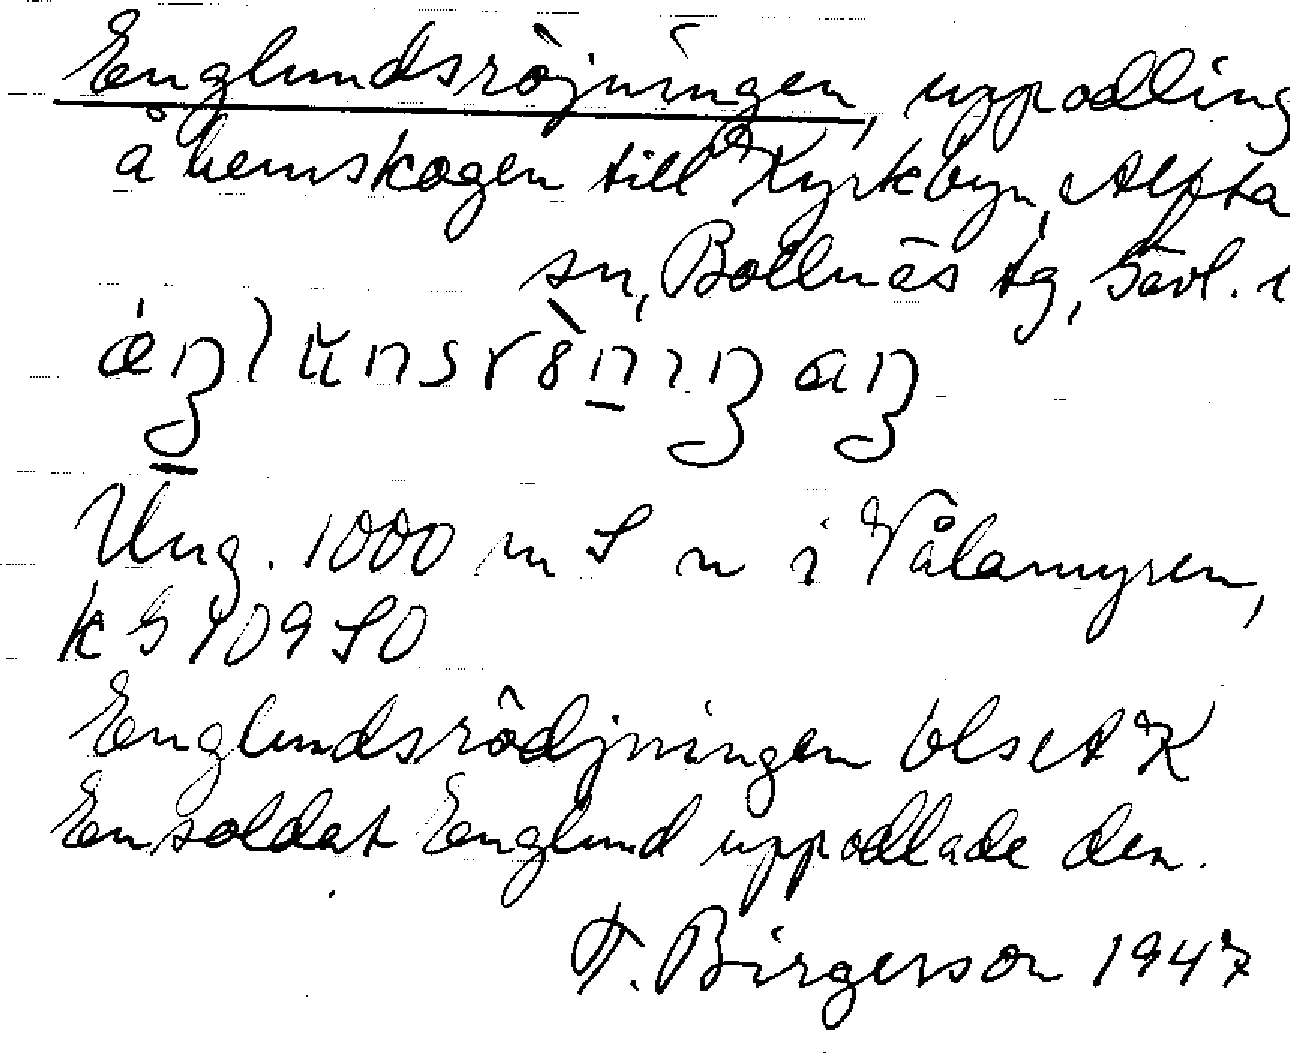 Englundsröjningen, uppodling
å hemskogen till Kyrkbyn, Alfta
sn, Bollnäs tg, Gävl. l
Ung. 1000 m S n i Vålamyren,
k G 409 SO
Englundsrödjningen blset K
En soldat Englund uppodlade den.
F. Birgerson 1947